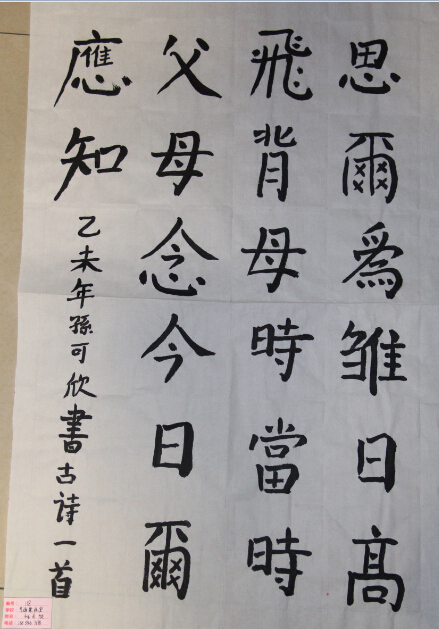 思爾為雏日高
飛背母時當時
父母念今日爾
應知
乙未年孫可欣書古诗一首